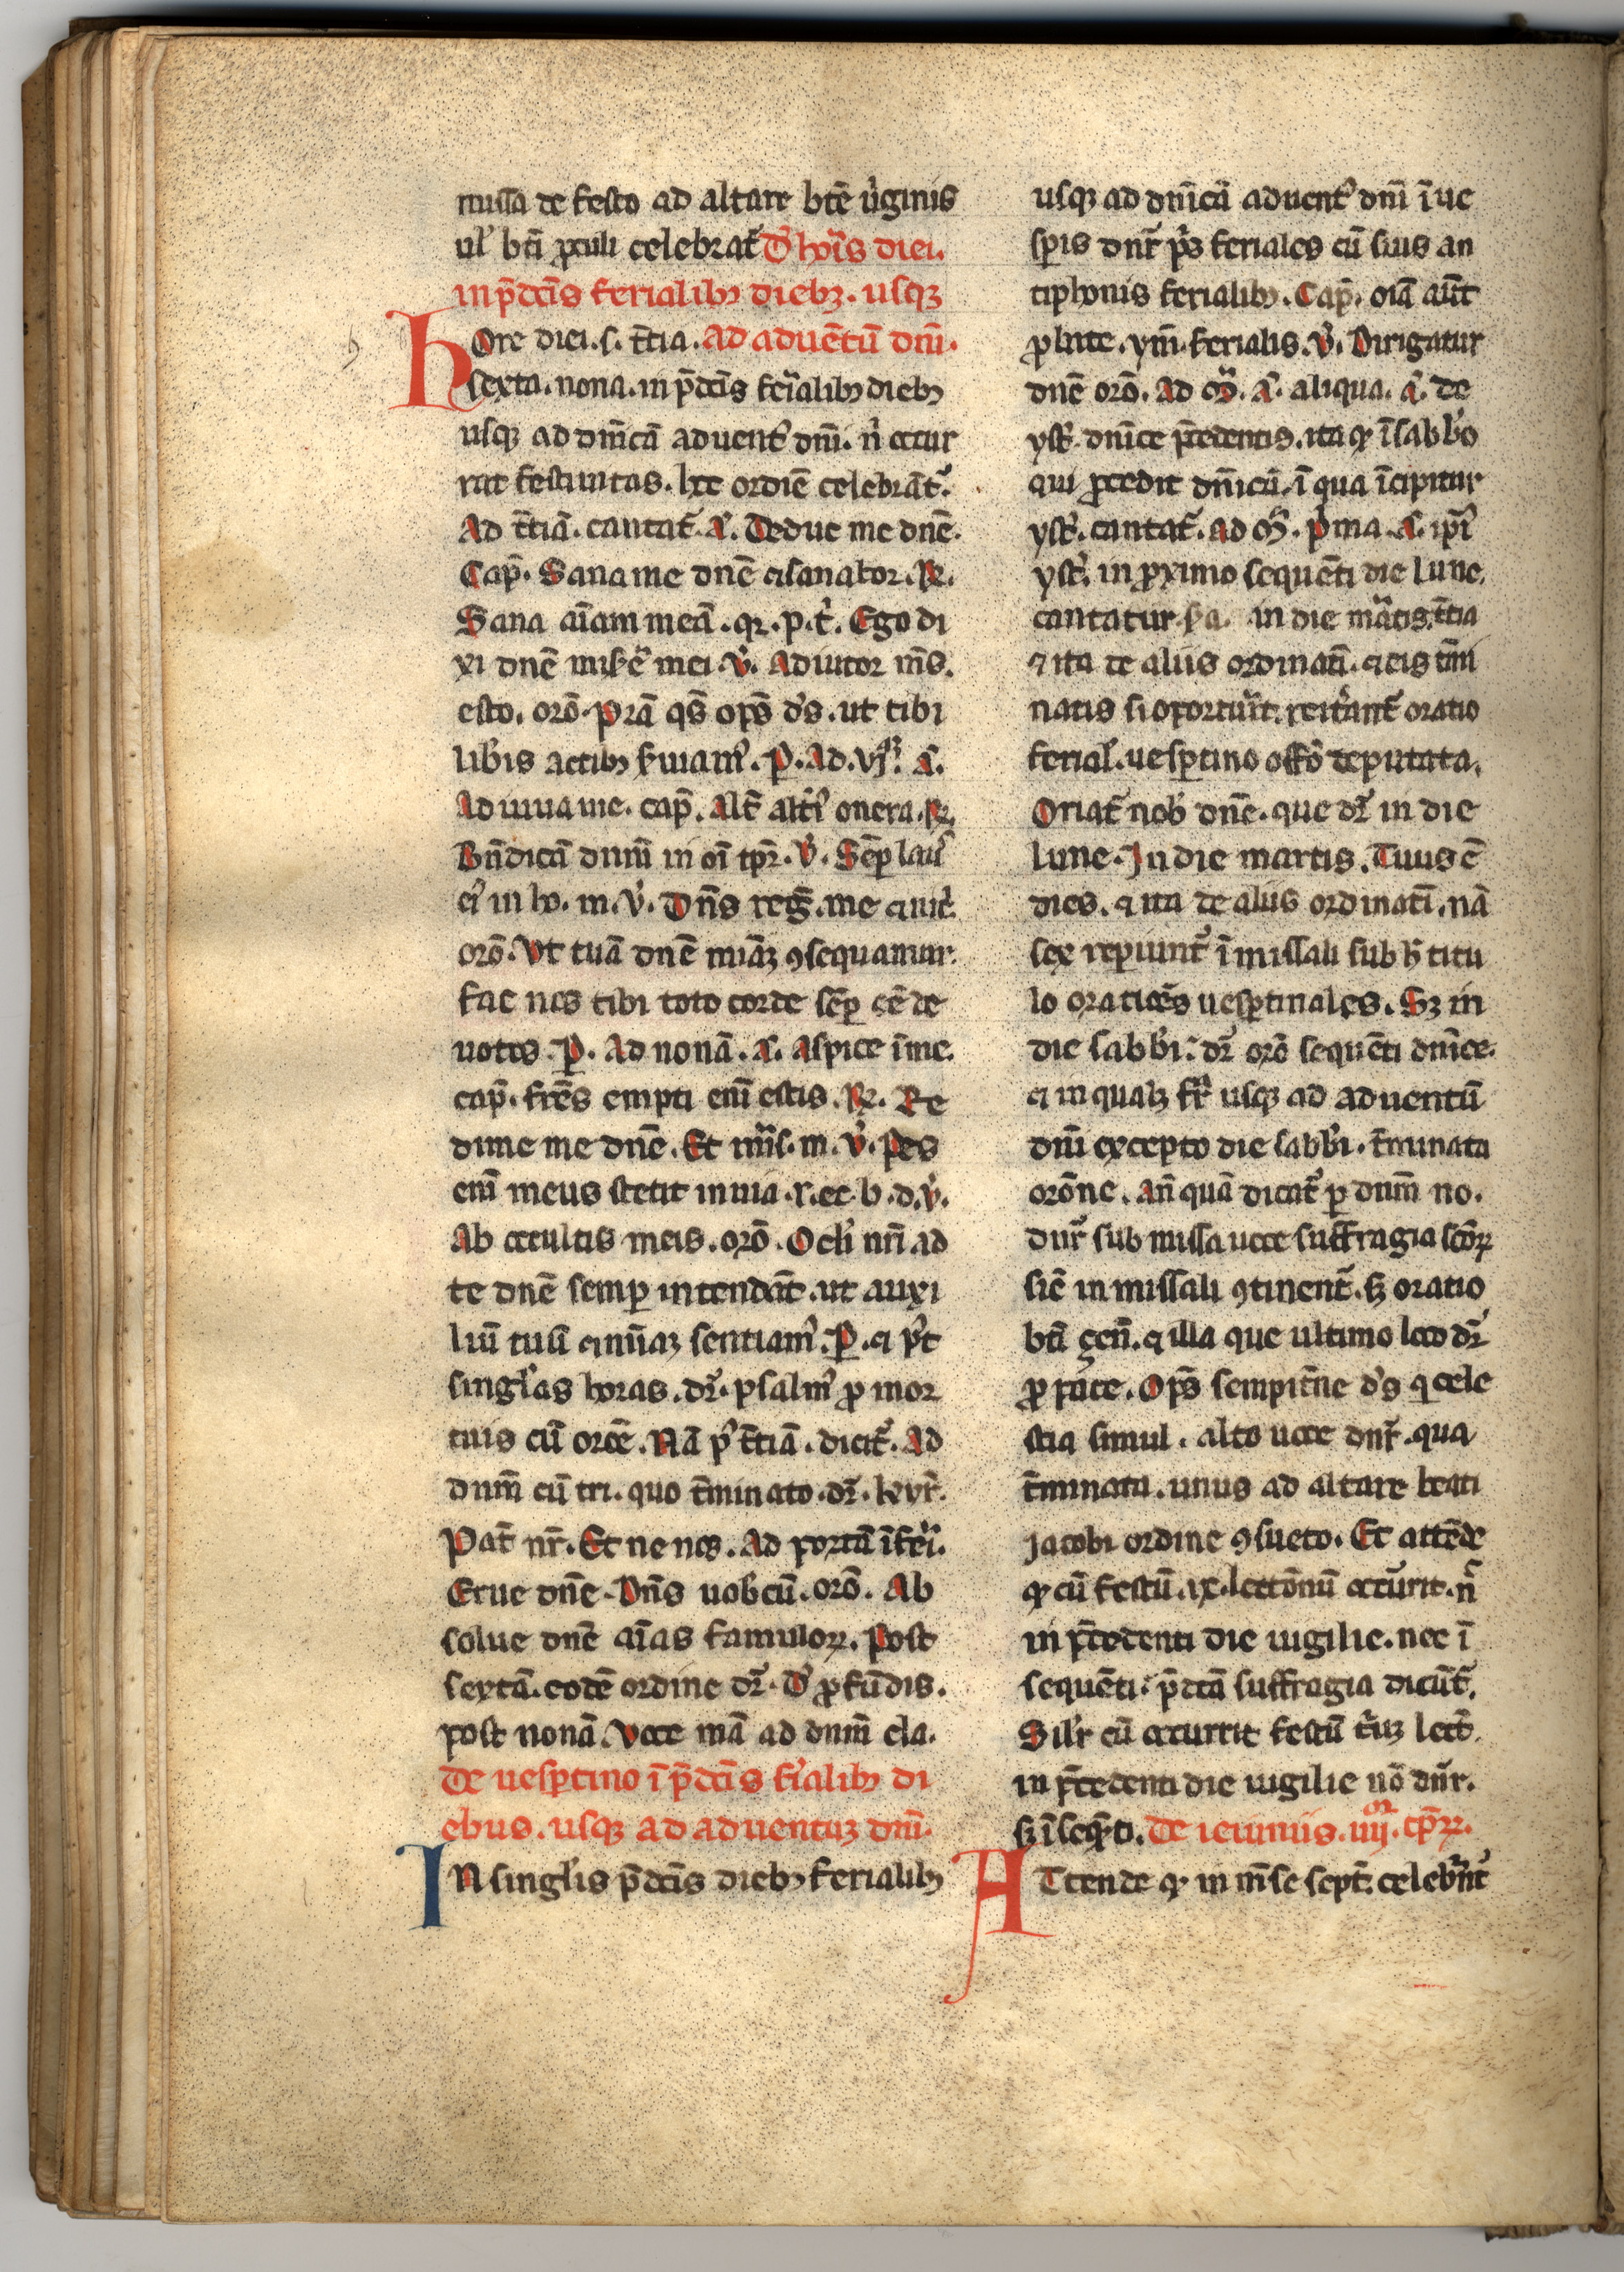 missa de festo ad altare btē ỽginis
ul' bti ꝓculi celebrat̃ D' hor̃is diei.
in p̄dcīs ferialibꝫ diebꝫ. usqꝫ
hOre diei. s. t̄tia. Ad aduētū dnī.
sexta. nona. in p̄dcīs fer̃ialibꝫ diebꝫ
usqꝫ ad dnīcā aduent' dnī. n̄ occur
rat festiuitas. hoc ordiē celebrāt̃.
Ad t̄tiā. cantat̃. A'. Deduc me dnē.
Cap̄. Sana me dnē ⁊ sanabor. R̷.
Sana aīam meā. qr. p. t'. Ego di
xi dnē mis̄ē mei. v̇. Adiutor m̄s.
esto. orō. Prā qs̄ op̄s d's. ut tibi
lib'is actibꝫ s'uiam'. P. Ad. vj̇. A'.
Adiuua me. cap̄. Alt̄ alt'i' onera. R̷.
Bn̄dicā dnm̄ in oī tpr̄. v̇. Semꝑ laus
ei' in ho. m. v̇. Dn̄s reg̃. me ⁊ nic̃.
orō. Vt tuā dnē miāꝫ ꝯsequamur.
fac nos tibi toto corde semꝑ eē de
uotos. P. Ad nonā. A'. Aspice ī me.
cap̄. fr̄es empti eni estis. R̷. Re
dime me dnē. Et mīs. m. v̇. Pes
enī meus stetit in uia. r. ec. b. d. v̇.
Ab occultis meis. orō. Ocli nr̄i ad
te dnē semꝑ intendāt. ut auxi
liū tuū ⁊ miāꝫ sentiam'. P. ⁊ p't
singl'as horas. dr̃. psalm' ꝓ mor
tuis cū orōe. Nā p' t̄tiā. dicit̃. Ad
dnm̄ cū tri. quo t̄minato. dr̃. kyr̄.
Pat̄ nr̄. Et ne nos. Ad portā īferi.
Erue dnē. Dn̄s uobcū. orō. Ab
solue dnē aīas famuloꝝ. Post
sextā. eodē ordine dr̃. D' ꝓfūdis.
post nonā. Voce mā ad dnm̄ cla.
De uesꝑtino ī p̄dcīs f'ialibꝫ di
ebus. usqꝫ ad aduentuꝫ dnī.
IN singl'is p̄dcīs diebꝫ ferialibꝫ
usqꝫ ad dnīcā aduent' dnī ī ue
sꝑis dnr̄ p̄s feriales cū suis an
tiphonis ferialibꝫ. Cap̄. oīa aūt
ꝓbate. ym̄. ferialis. v̇. Dirigatur
dnē orō. Ad m̄. A'. aliqua. A'. de
yst'. dnīce p̄cedentis. ita ꝙ ī sabb'o
qui p̄cedit dnīcā, ī qua īcipitur
yst'. cantat̃. ad m̄. p'ma. A'. ipi'
yst'. in ꝓximo sequēti die lune.
cantatur s'a. in die m̄atis. t̄tia
⁊ ita de aliis ordinatī. ⁊ eis t̄mi
natis si oportu'it. reit'ant̃ oratio
ferial'. uesꝑtino off'o deputata.
Oriat̃ nob' dnē. que dr̃ in die
lune. In die martis. Tuus ē
dies. ⁊ ita de aliis ordinatī. nā
sex reꝑiunt̃ ī missali sub h̄ titu
lo oratiōēs uesꝑtinales. Sꝫ in
die sabb'i. dr̃ orō sequēti dnīce.
⁊ in qualꝫ fr̄ usqꝫ ad aduentū
dnī excepto die sabb'i. t̄minata
orōne. an̄ quā dicat̃ ꝑ dnm̄ no.
dnr̃ sub missa uoce suffragia scōꝝ
sic̄ in missali ꝯtinent̃. sꝫ oratio
bti gen̄. ⁊ illa que ultimo loco dr̃
ꝓ pace. Op̄s sempit̄ne d's q cele
stia simul. alto uoce dnr̃. qua
t̄minata. unus ad altare beati
Jacobi ordine ꝯsueto. Et attēde
ꝙ cū festū. ix. lectōnū occurrit. n̄
in p̄cedenti die uigilie. nec ī
sequēti. p̄dcā suffragia dicūt̃.
Silr̄ cū occurrit festū t'uꝫ lect̄.
in p̄cedenti die uigilie nō dn̄r.
sꝫ ī seqn̄ti. De ieiuniis. iiij. tp̄ꝝ.
ATtende ꝙ in mēse sept̄. celebr̄nt'